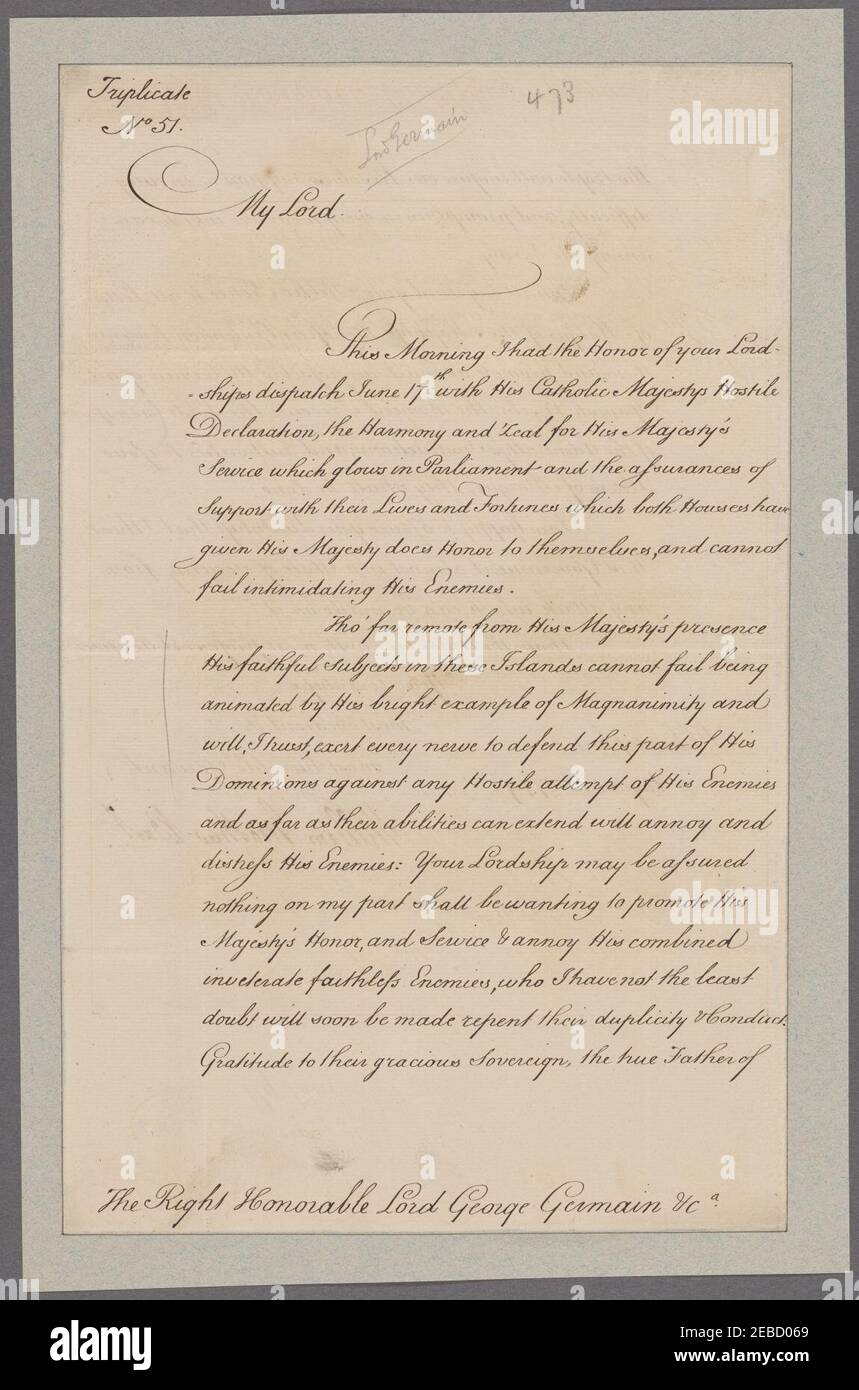 Triplicate
Nº 51.
473
Lord Germain
My Lord.
This Morning I had the Honor of your Lord-
-ships dispatch June 17th with His Catholic Majestys Hostile
Declaration, the Harmony and Zeal for His Majesty's
Service which glows in Parliament and the assurances of
Support with their Lives and Fortunes which both Houses have
given His Majesty does Honor to themselves, and cannot
fail intimidating His Enemies.
Tho' far remote from His Majesty's presence
His faithful subjects in these Islands cannot fail being
animated by His bright example of Magnanimity and
will, I trust, exert every nerve to defend this part of His
Dominions against any Hostile attempt of His Enemies
and as far as their abilities can extend will annoy and
distress His Enemies: Your Lordship may be assured
nothing on my part shall be wanting to promote His
Majesty's Honor, and Service & annoy His combined
inveterate faithless Enemies, who I have not the least
doubt will soon be made repent their duplicity & Conduct.
Gratitude to their gracious Sovereign, the true Father of
The Right Honorable Lord George Germain &cª
alamy
Image ID: 2EBD069
www.alamy.com